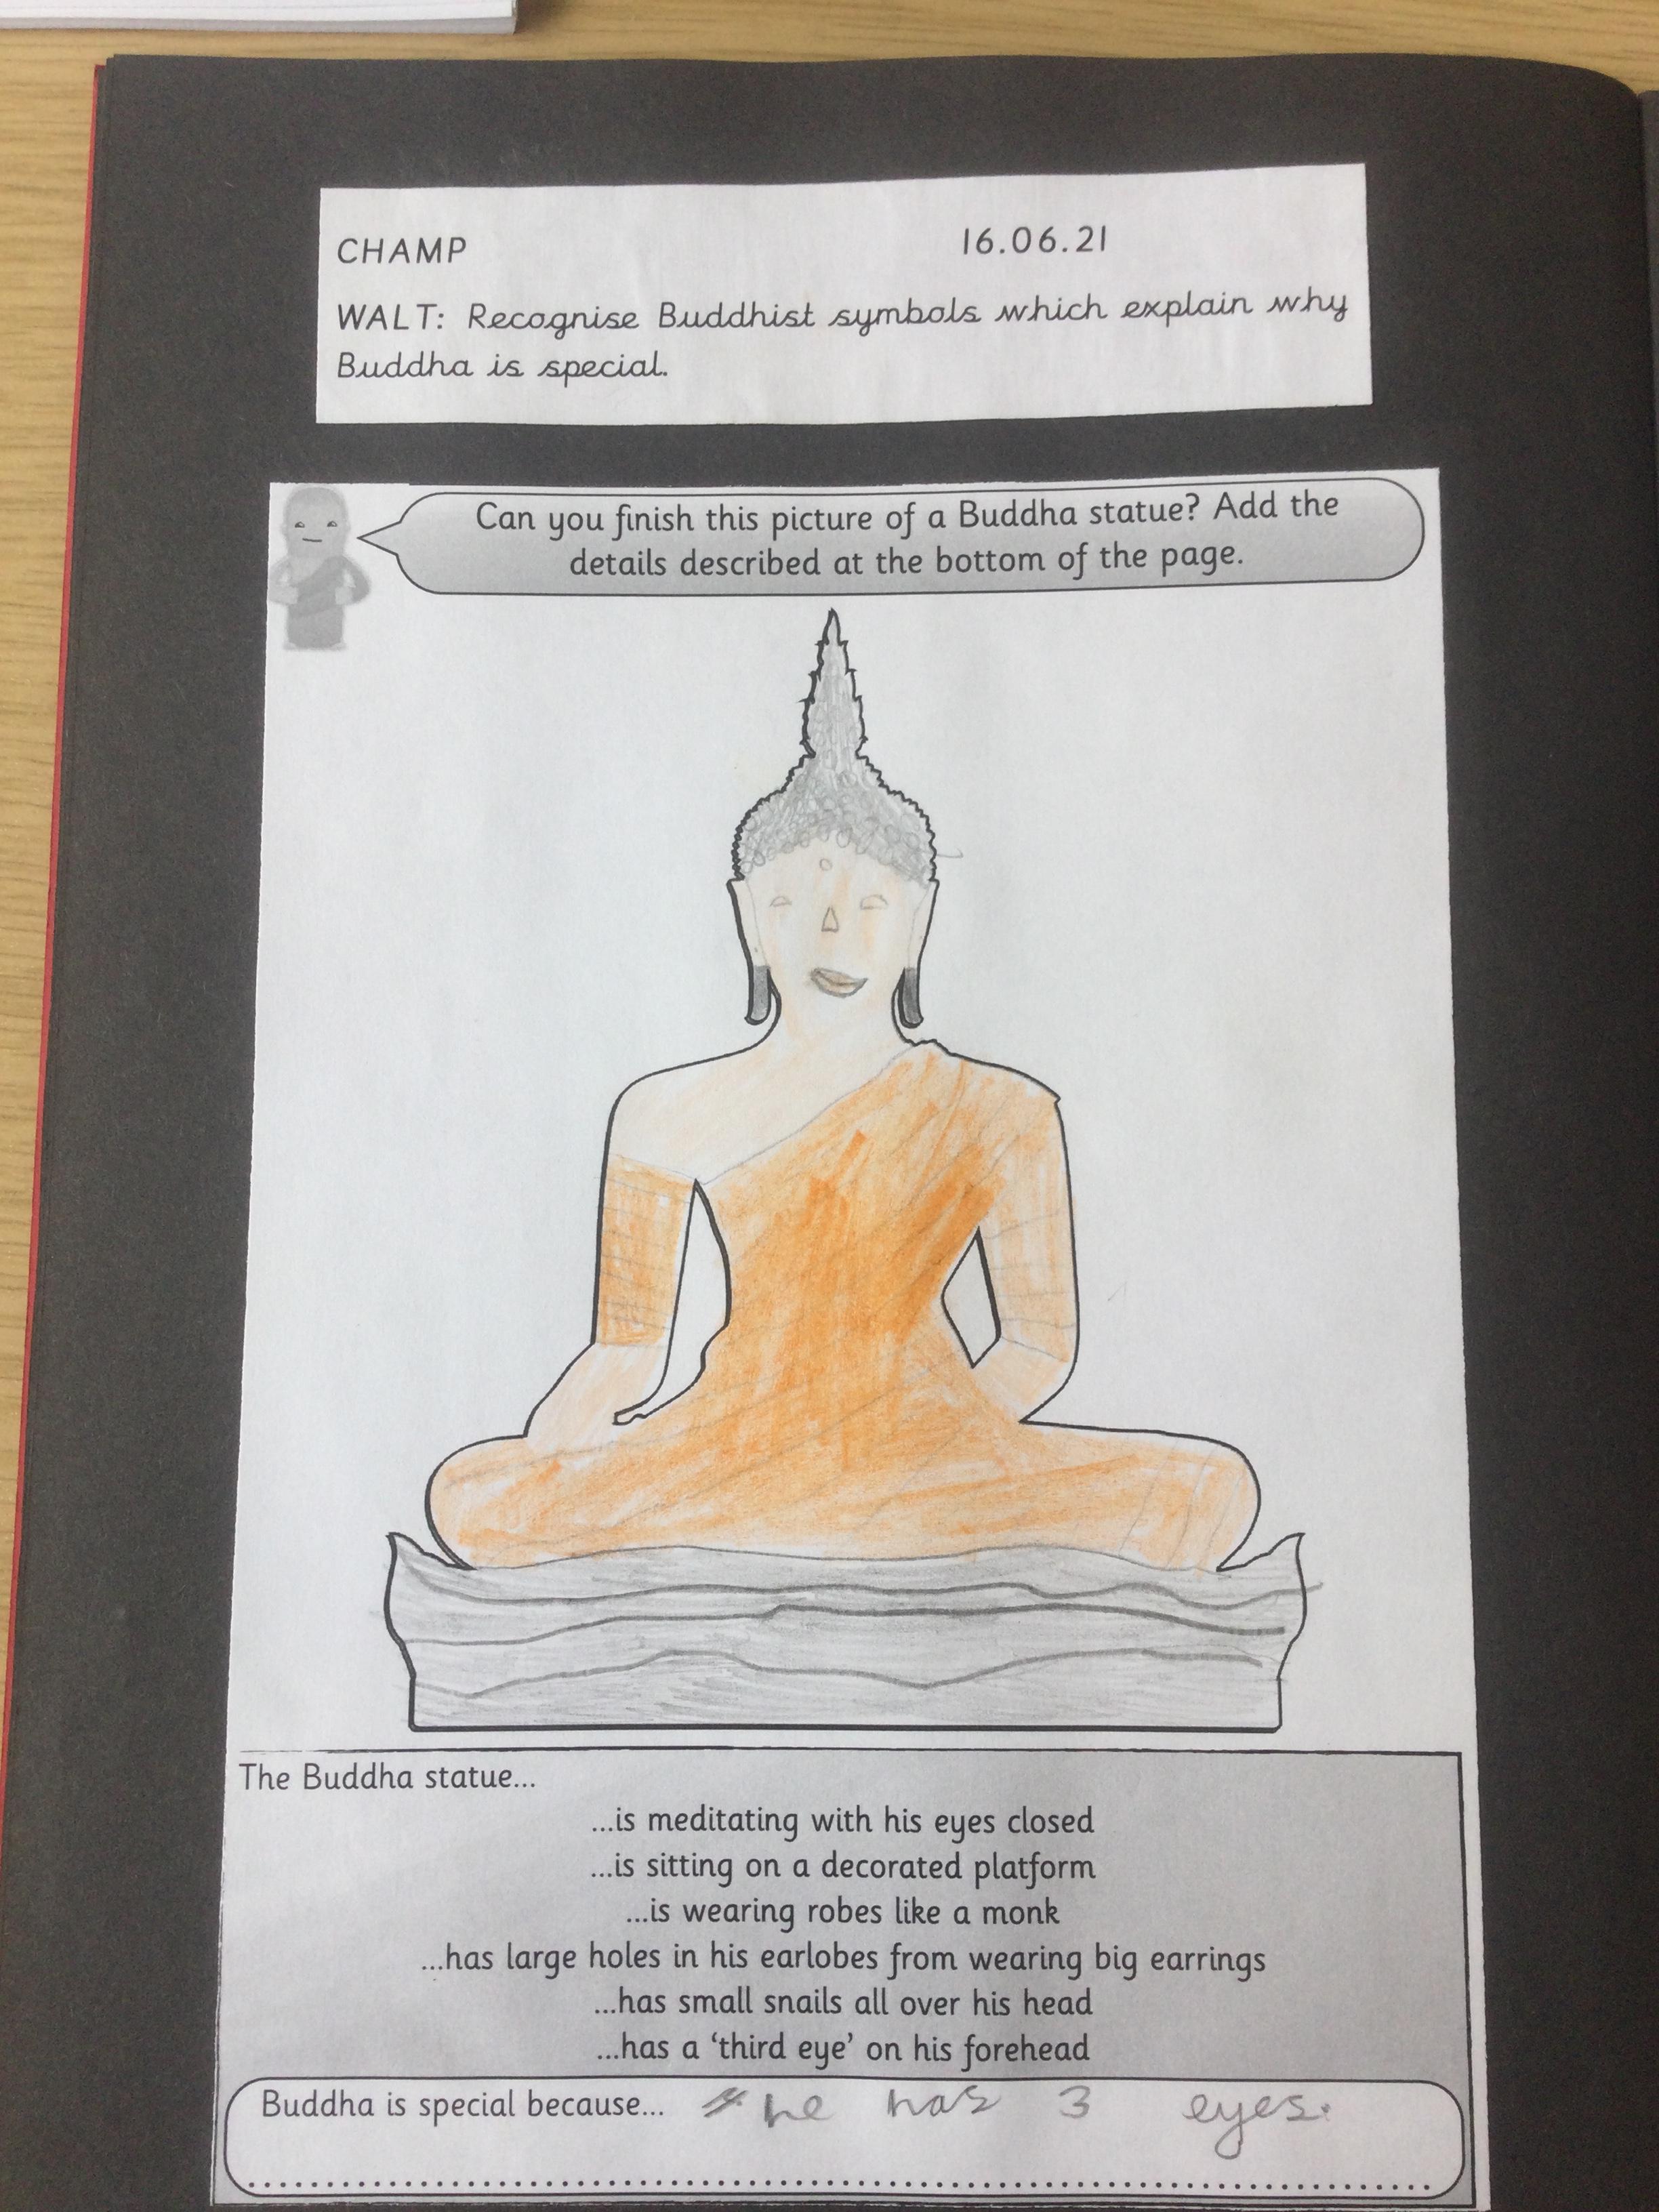 CHAMP 16.06.21
WALT: Recognise Buddhist symbols which explain why
Buddha is special.
Can you finish this picture of a Buddha statue? Add the
details described at the bottom of the page.
The Buddha statue...
...is meditating with his eyes closed
...is sitting on a decorated platform
...is wearing robes like a monk
...has large holes in his earlobes from wearing big earrings
...has small snails all over his head
...has a ‘third eye’ on his forehead
Buddha is special because... he has 3 eyes.